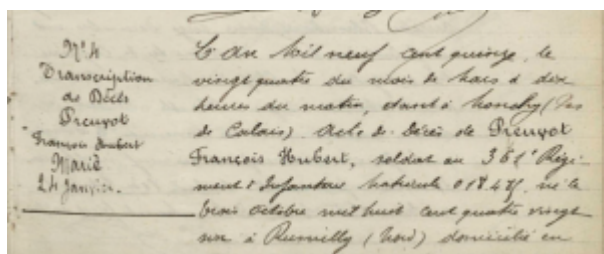 N° 4
Transcription
de Décès
Preuvot
François Hubert
Marié
24 Janvier.
L'An Mil neuf cent quinze, le
vingt quatre du mois de Mars à dix
heures du matin, étant à (Pas
de Calais). Acte de Décès de Preuvot
François Hubert, soldat au 361e Régi-
ment d'Infanterie Matricule né le
trois octobre mil huit cent quatre vingt
à Rumilly (Nord) domicilié en